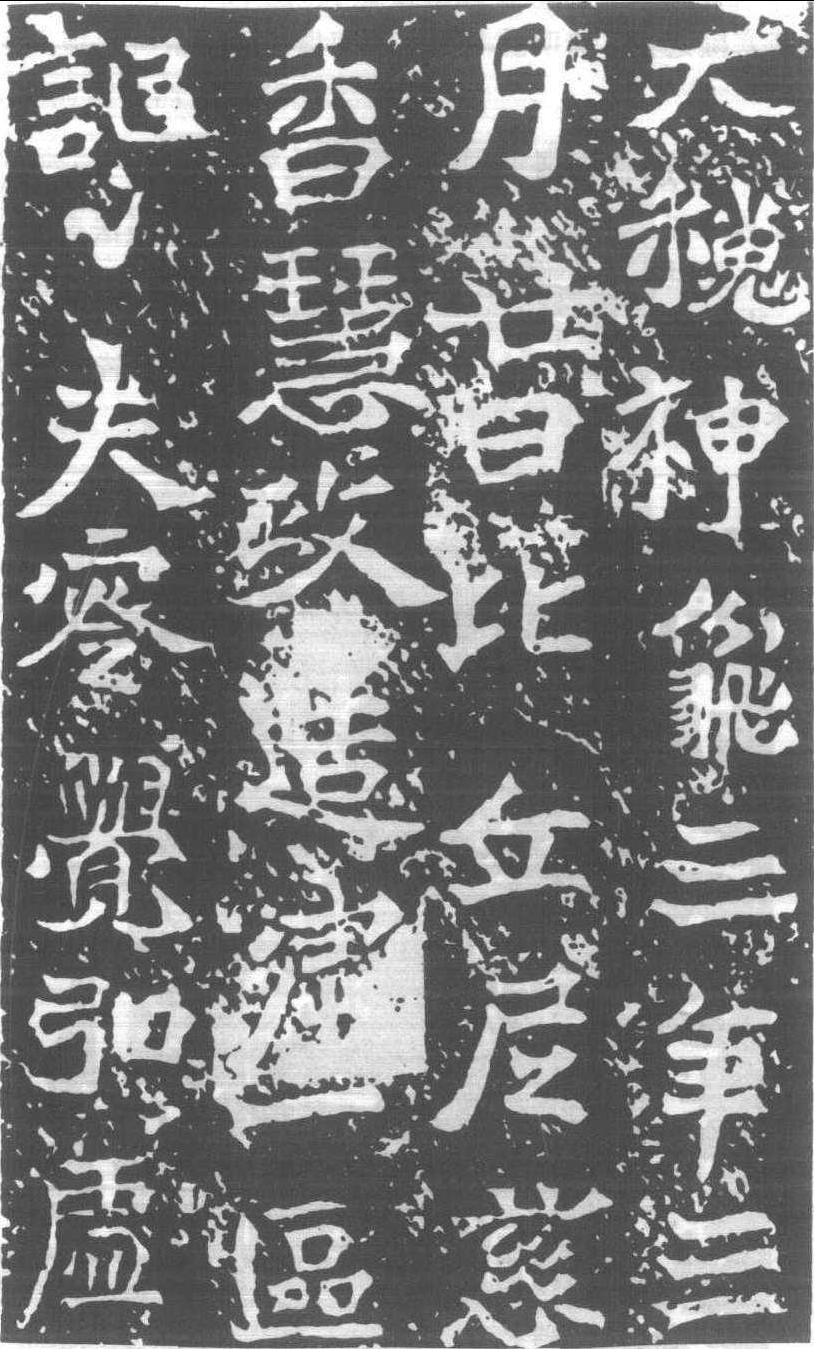 大魏神龜三年三
月廿日比丘尼慈
香慧政造窟一區
記之夫零覺弘虛